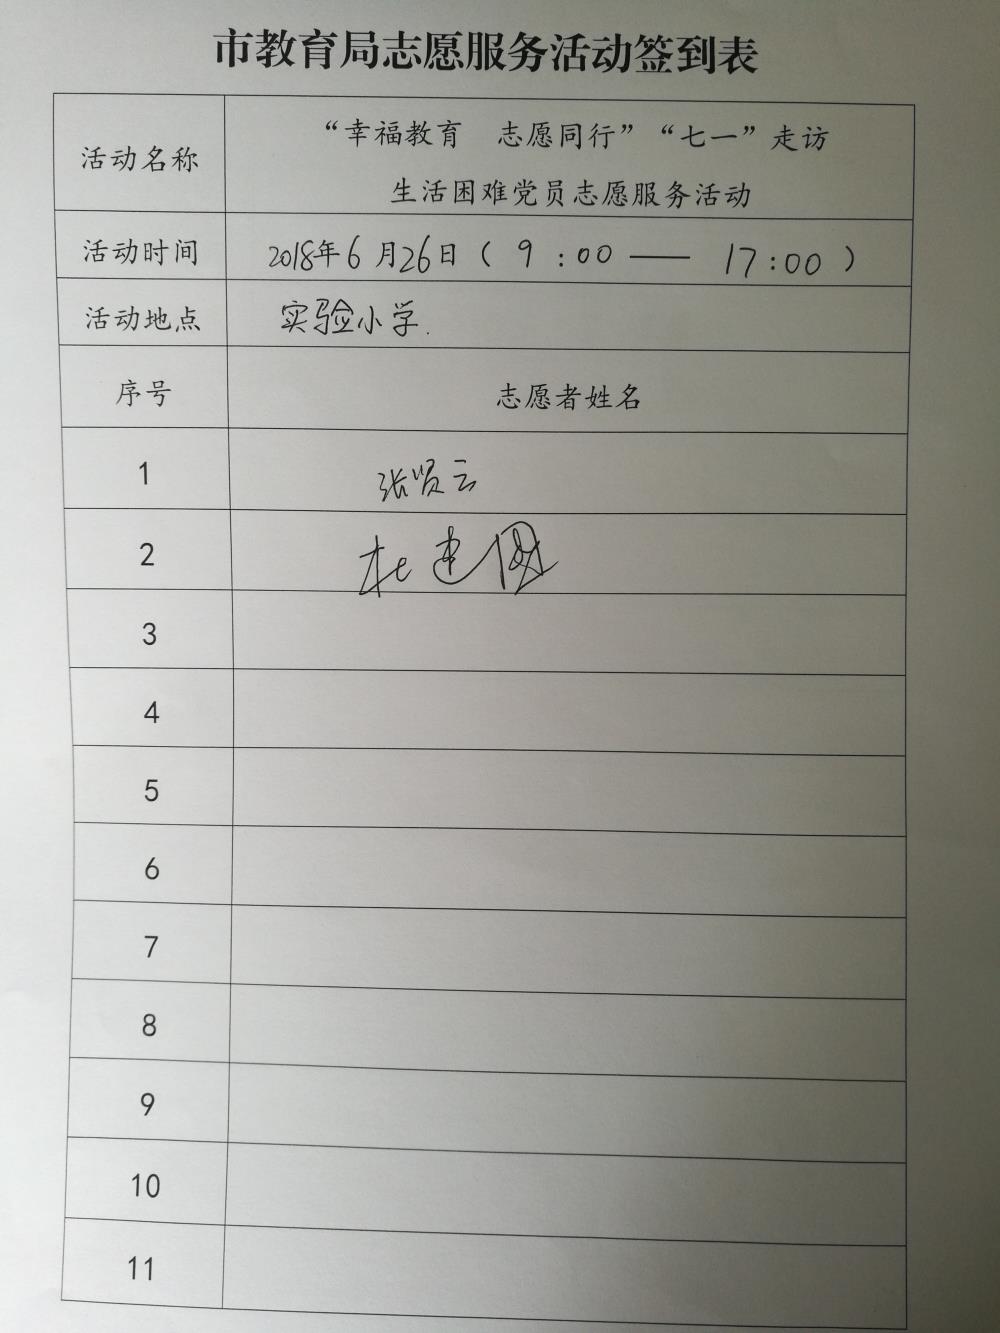 市教育局志愿服务活动签到表
活动名称
“幸福教育 志愿同行”“七一”走访
生活困难党员志愿服务活动
活动时间
2018年6月26日(9:00——17:00)
活动地点
实验小学.
序号
志愿者姓名
1
张贤云
2
杜建国
3
4
5
6
7
8
9
10
11